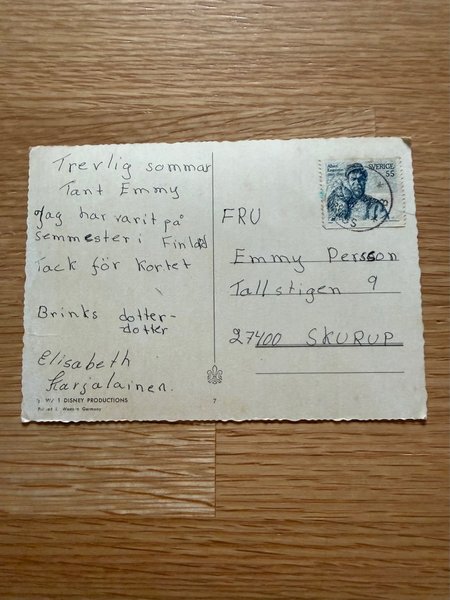 Trevlig sommar
Tant Emmy
Jag har varit på
semmester i Finland
Tack för kortet
Brinks dotter-
dotter
Elisabeth
Karjalainen.
WALT DISNEY PRODUCTIONS
Printed in Western Germany
7
SVERIGE
55
FRU
Emmy Persson
Tallstigen 9
27400 SKURUP